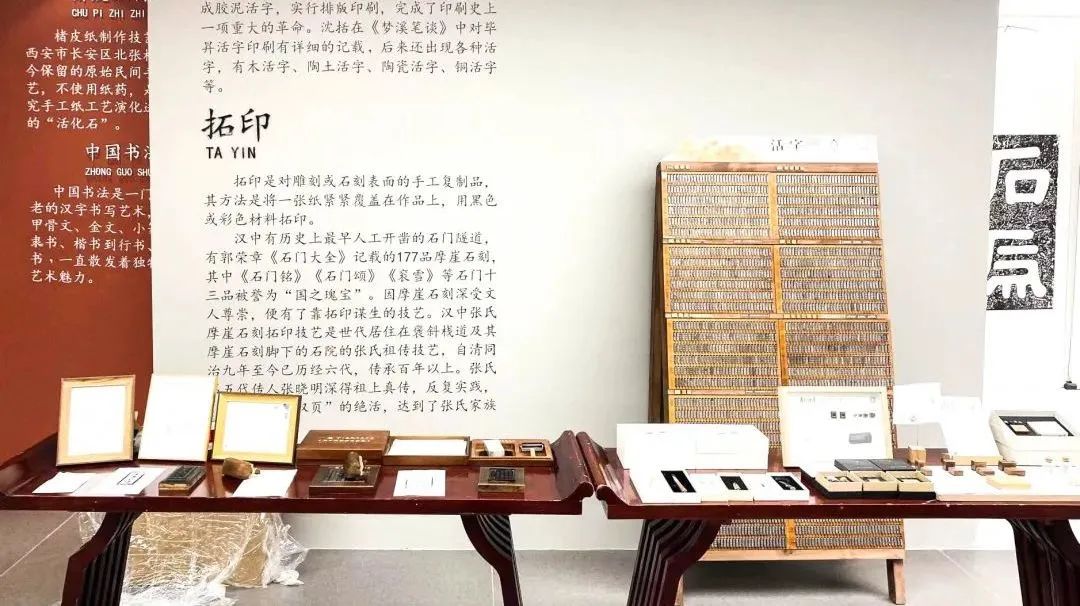 CHU PI ZHI ZHI
楮皮纸制作技
西安市长安区北张
今保留的原始民间
艺，不使用纸药，
究手工纸工艺演化
的“活化石”。
中国书法
ZHONG GUO SHU
中国书法是一门
老的汉字书写艺术，
甲骨文、金文、小
隶书、楷书到行书、
书，一直散发着独
艺术魅力。
成胶泥活字，实行排版印刷，完成了印刷史上
一项重大的革命。沈括在《梦溪笔谈》中对毕
昇活字印刷有详细的记载，后来还出现各种活
字，有木活字、陶土活字、陶瓷活字、铜活字
等。
拓印
TA YIN
拓印是对雕刻或石刻表面的手工复制品，
其方法是将一张纸紧紧覆盖在作品上，用黑色
或彩色材料拓印。
汉中有历史上最早人工开凿的石门隧道，
有郭荣章《石门大全》记载的177品摩崖石刻，
其中《石门铭》《石门颂》《衮雪》等石门十
三品被誉为“国之瑰宝”。因摩崖石刻深受文
人尊崇，便有了靠拓印谋生的技艺。汉中张氏
摩崖石刻拓印技艺是世代居住在褒斜栈道及其
摩崖石刻脚下的石院的张氏祖传技艺，自清同
治九年至今已历经六代，传承百年以上。张氏
五代传人张晓明深得祖上真传，反复实践，
页”的绝活，达到了张氏家族
活字
石